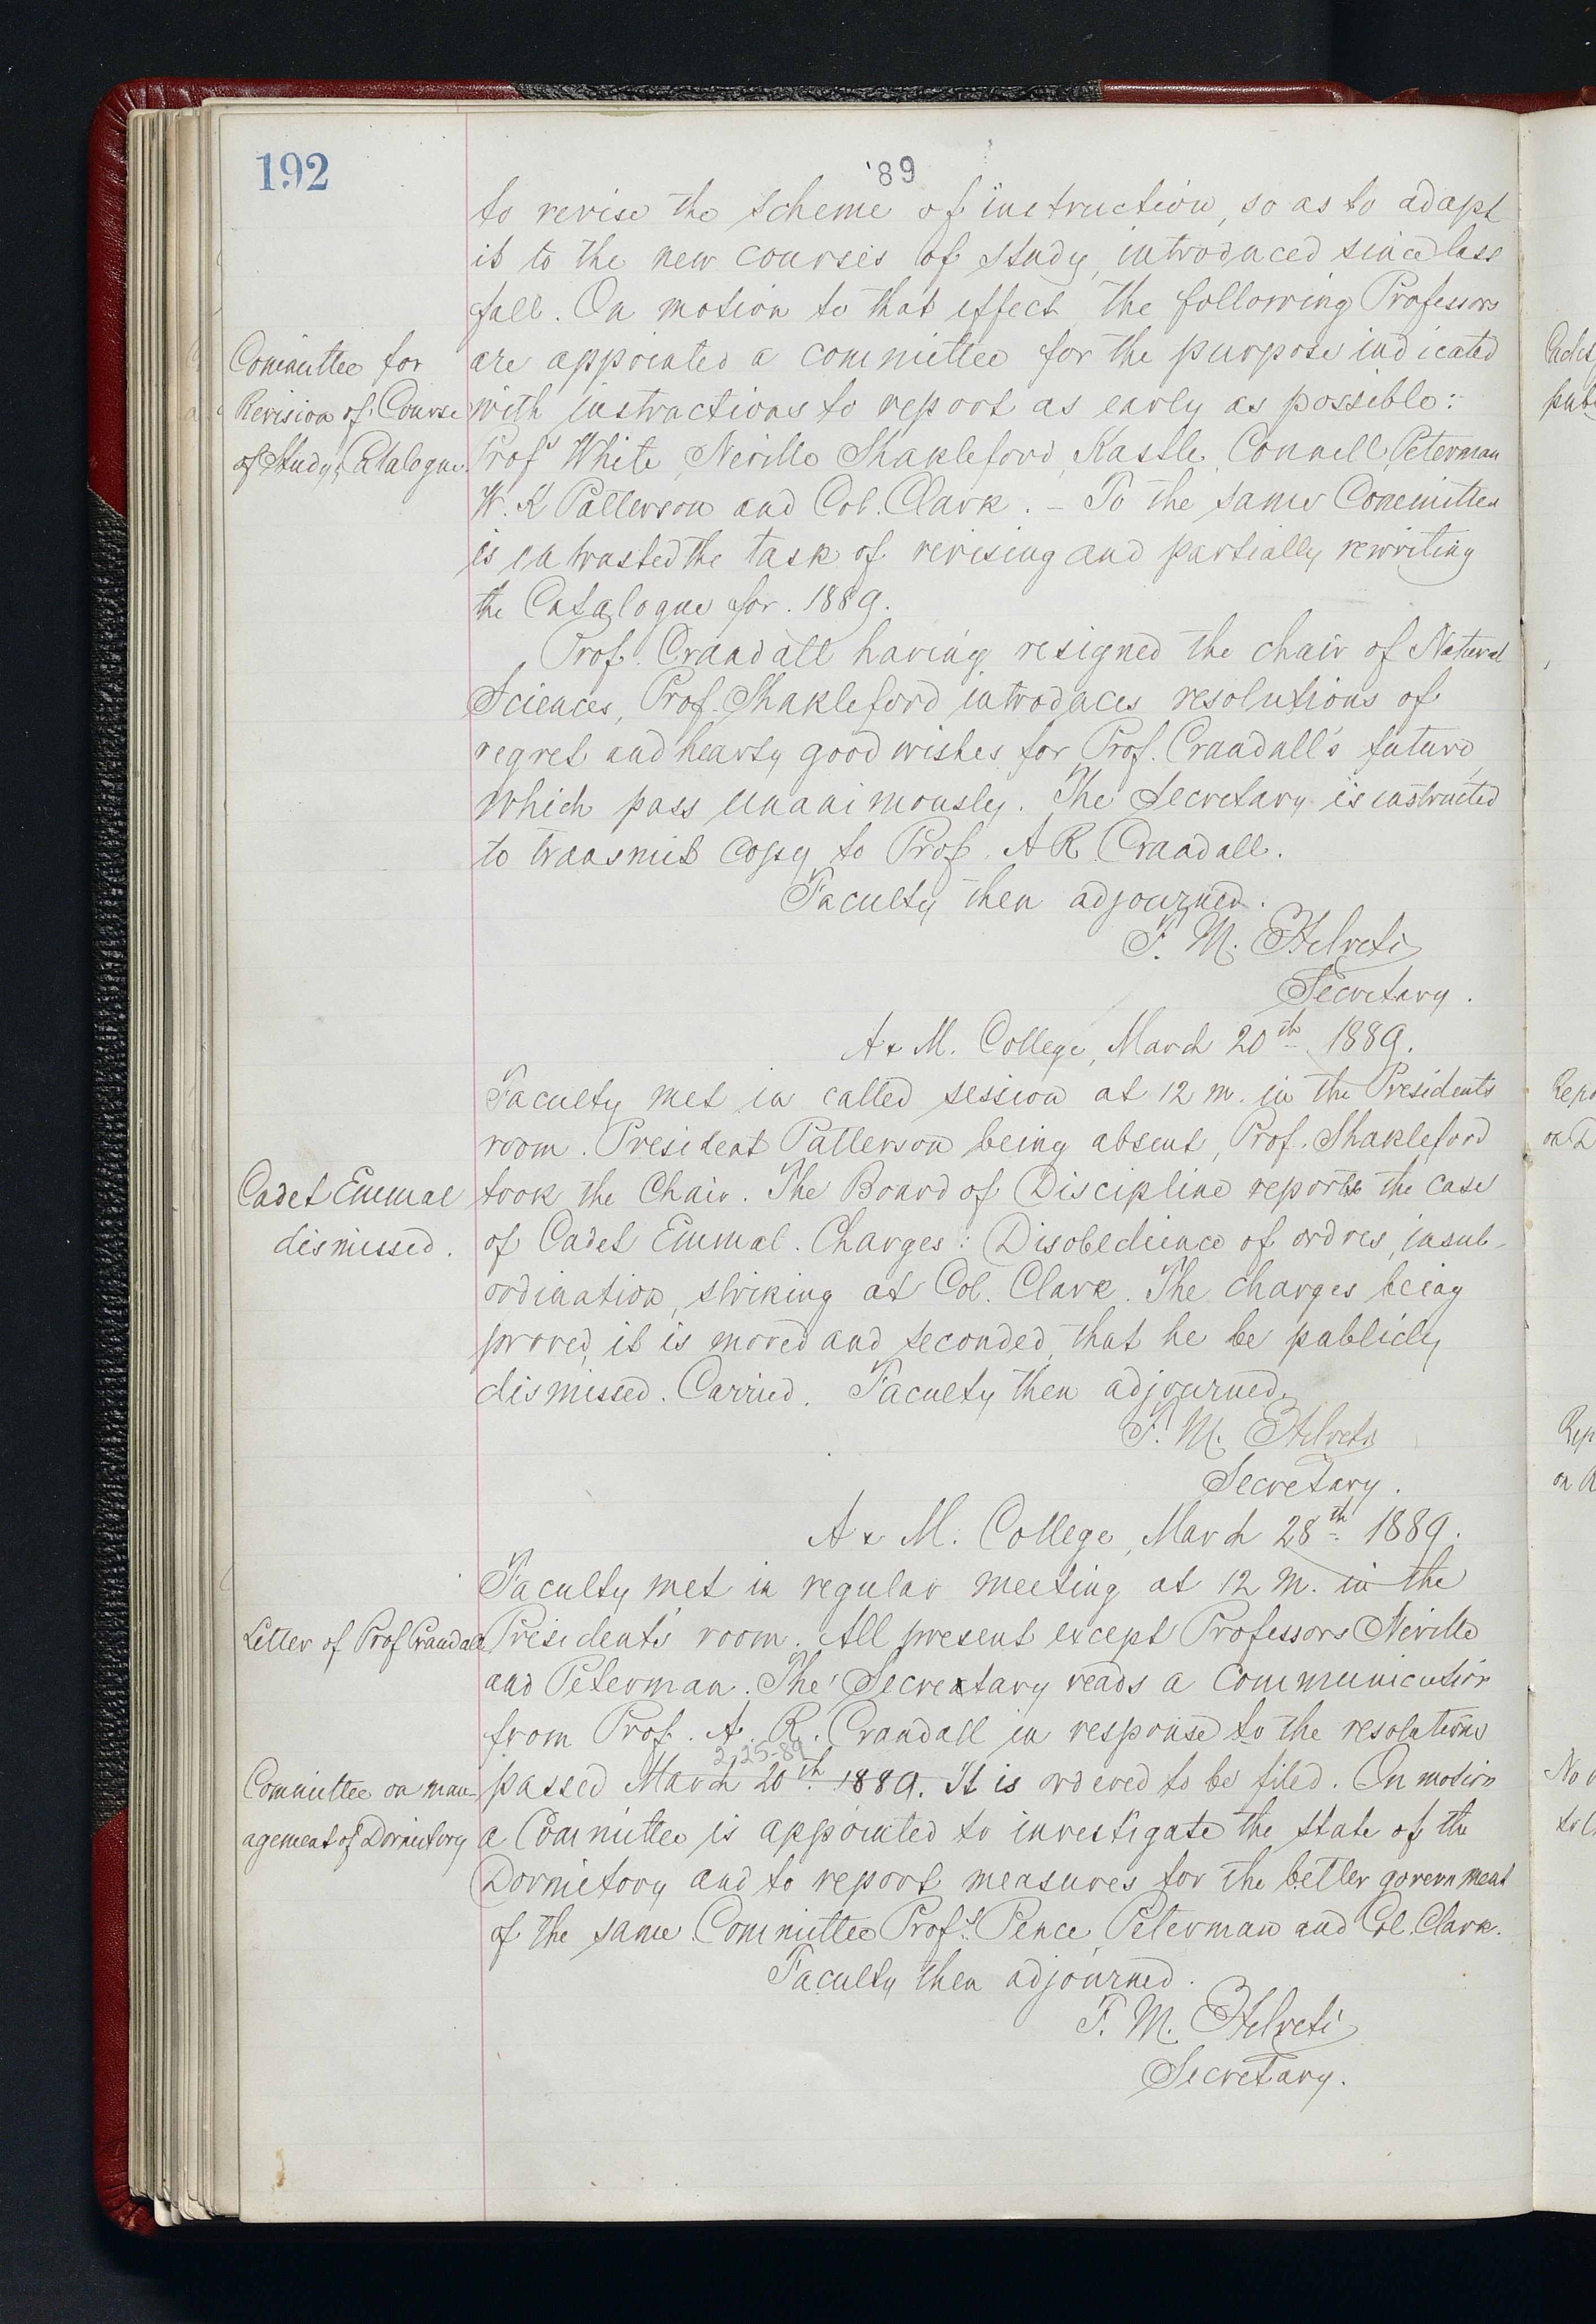 192
'89
to revise the scheme of instruction, so as to adapt
it to the new courses of study, introduced since last
fall. On motion to that effect the following Professors
Committee for
are appointed a committee for the purpose indicated
Revision of Course
with instructions to report as early as possible:
of Study, Catalogue.
Profs White, Neville Shakleford, Kastle, Connell, Peterman
W. K Patterson and Col. Clark. – To the same Committee
is intrusted the task of revising and partially rewriting
the Catalogue for. 1889.
Prof. Crandall having resigned the chair of Natural
Sciences, Prof. Shakleford introduces resolutions of
regret and hearty good wishes for Prof. Crandall's future,
which pass unanimously. The Secretary is instructed
to transmit copy to Prof. A R Crandall.
Faculty then adjourned.
F. M. Helveti
Secretary.
A & M. College, March 20th 1889.
Faculty met in called session at 12 m. in the President's
room. President Patterson being absent, Prof. Shakleford
Cadet Emmal
took the Chair. The Board of Discipline reports the case
dismissed.
of Cadet Emmal. Charges: Disobedience of ordres, insub-
ordination, striking at Col. Clark. The charges being
proved, it is moved and seconded, that he be publicly
dismissed. Carried. Faculty then adjourned.
F. M. Helveti
Secretary.
A & M. College, March 28th 1889.
Faculty met in regular meeting at 12 M. in the
Letter of Prof Crandall
President's room. All present except Professors Neville
and Peterman. The Secretary reads a communication
from Prof. A. R. Crandall in response to the resolutions
2-25-89
Committee on man-
passed March 20th 1889. It is ordered to be filed. On motion
agement of Dormitory
a Committee is appointed to investigate the state of the
Dormitory and to report measures for the better government
of the same. Committee Profs. Pence, Peterman and Col. Clark.
Faculty then adjourned.
F. M. Helveti
Secretary.